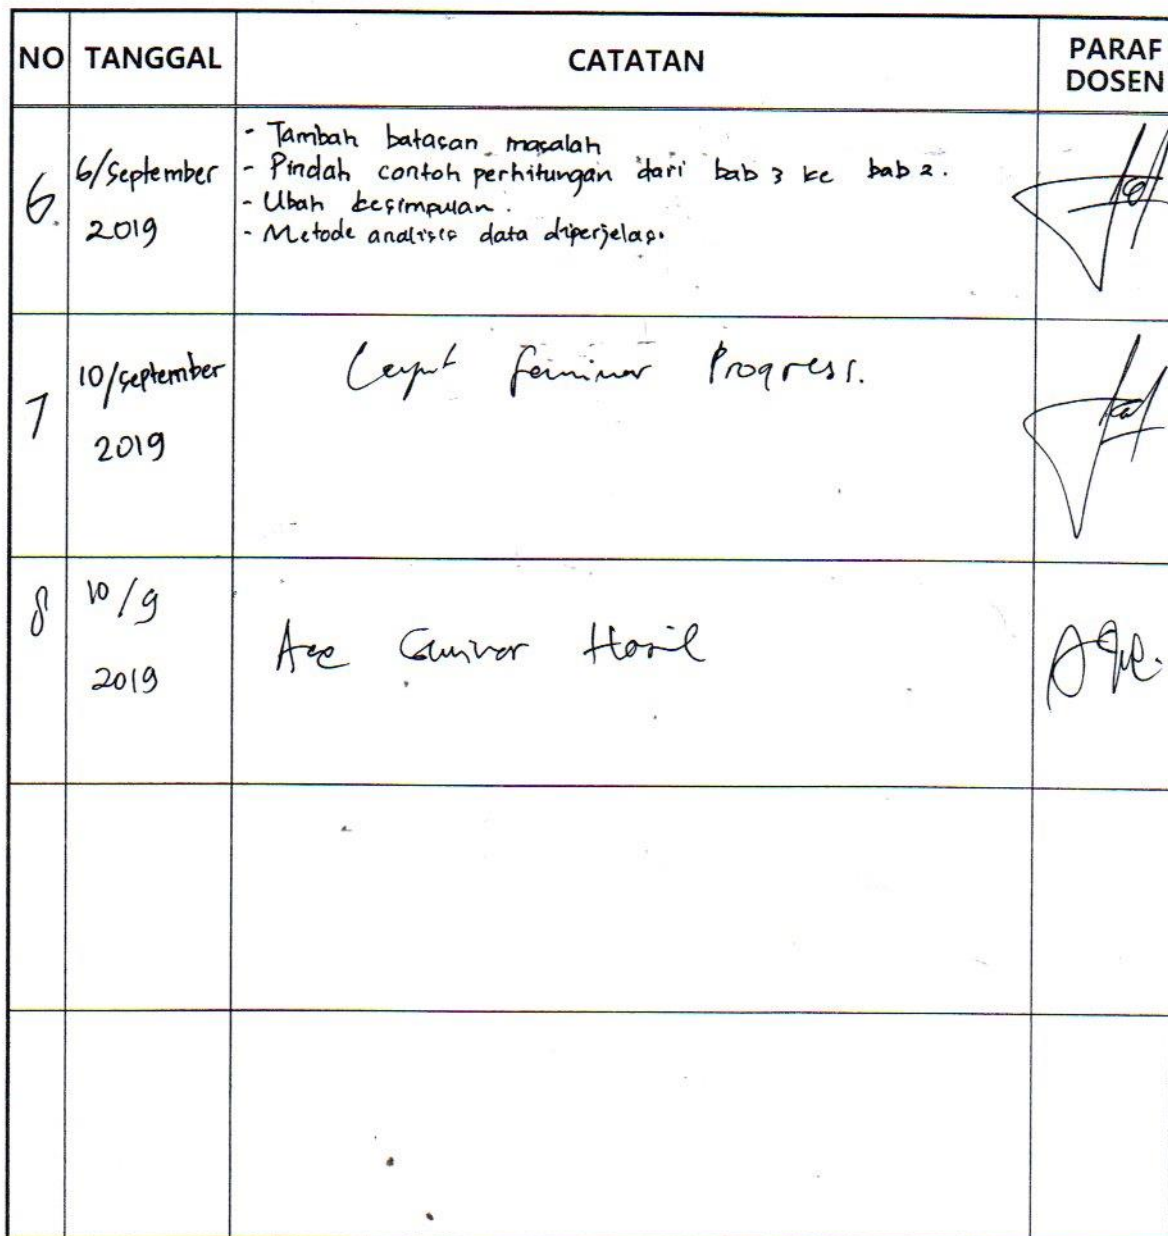 NO TANGGAL CATATAN PARAF DOSEN
6. 6/September 2019
- Tambah batasan masalah
- Pindah contoh perhitungan dari bab 3 ke bab 2.
- Ubah kesimpulan.
- Metode analisis data diperjelas.
7 10/September 2019
Seminar Progress.
8 10/9 2019
Acc Seminar Hasil